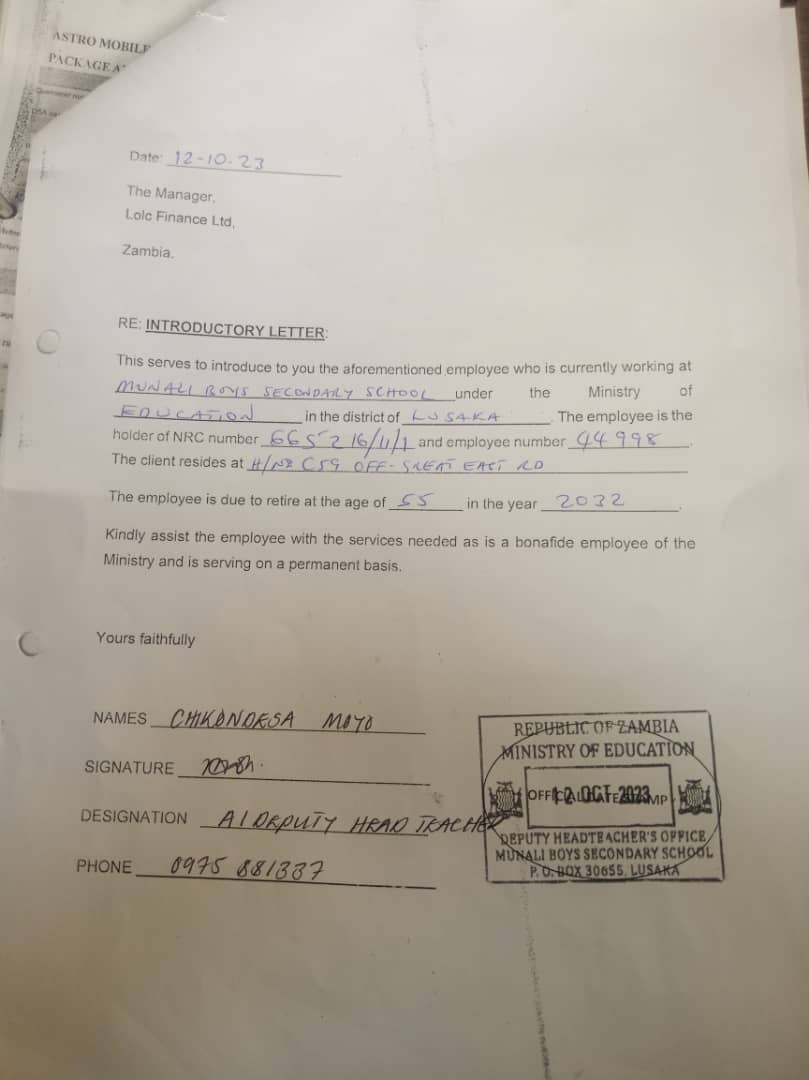 ASTRO MOBILE
PACKAGE A
Date: 12-10-23
The Manager,
Lolc Finance Ltd,
Zambia.
RE: INTRODUCTORY LETTER:
This serves to introduce to you the aforementioned employee who is currently working at
MUNALI BOYS SECONDARY SCHOOL under the Ministry of
EDUCATION in the district of LUSAKA . The employee is the
holder of NRC number 665216/11/1 and employee number 44998 .
The client resides at H/NO C59 OFF- GREAT EAST RD
The employee is due to retire at the age of 55 in the year 2032 .
Kindly assist the employee with the services needed as is a bonafide employee of the
Ministry and is serving on a permanent basis.
Yours faithfully
NAMES CHIKONDESA MOYO
SIGNATURE
DESIGNATION A/DEPUTY HEAD TEACHER
PHONE 0975 881337
REPUBLIC OF ZAMBIA
MINISTRY OF EDUCATION
OFFICIAL DATE STAMP
12 OCT 2023
DEPUTY HEADTEACHER'S OFFICE
MUNALI BOYS SECONDARY SCHOOL
P. O. BOX 30655, LUSAKA